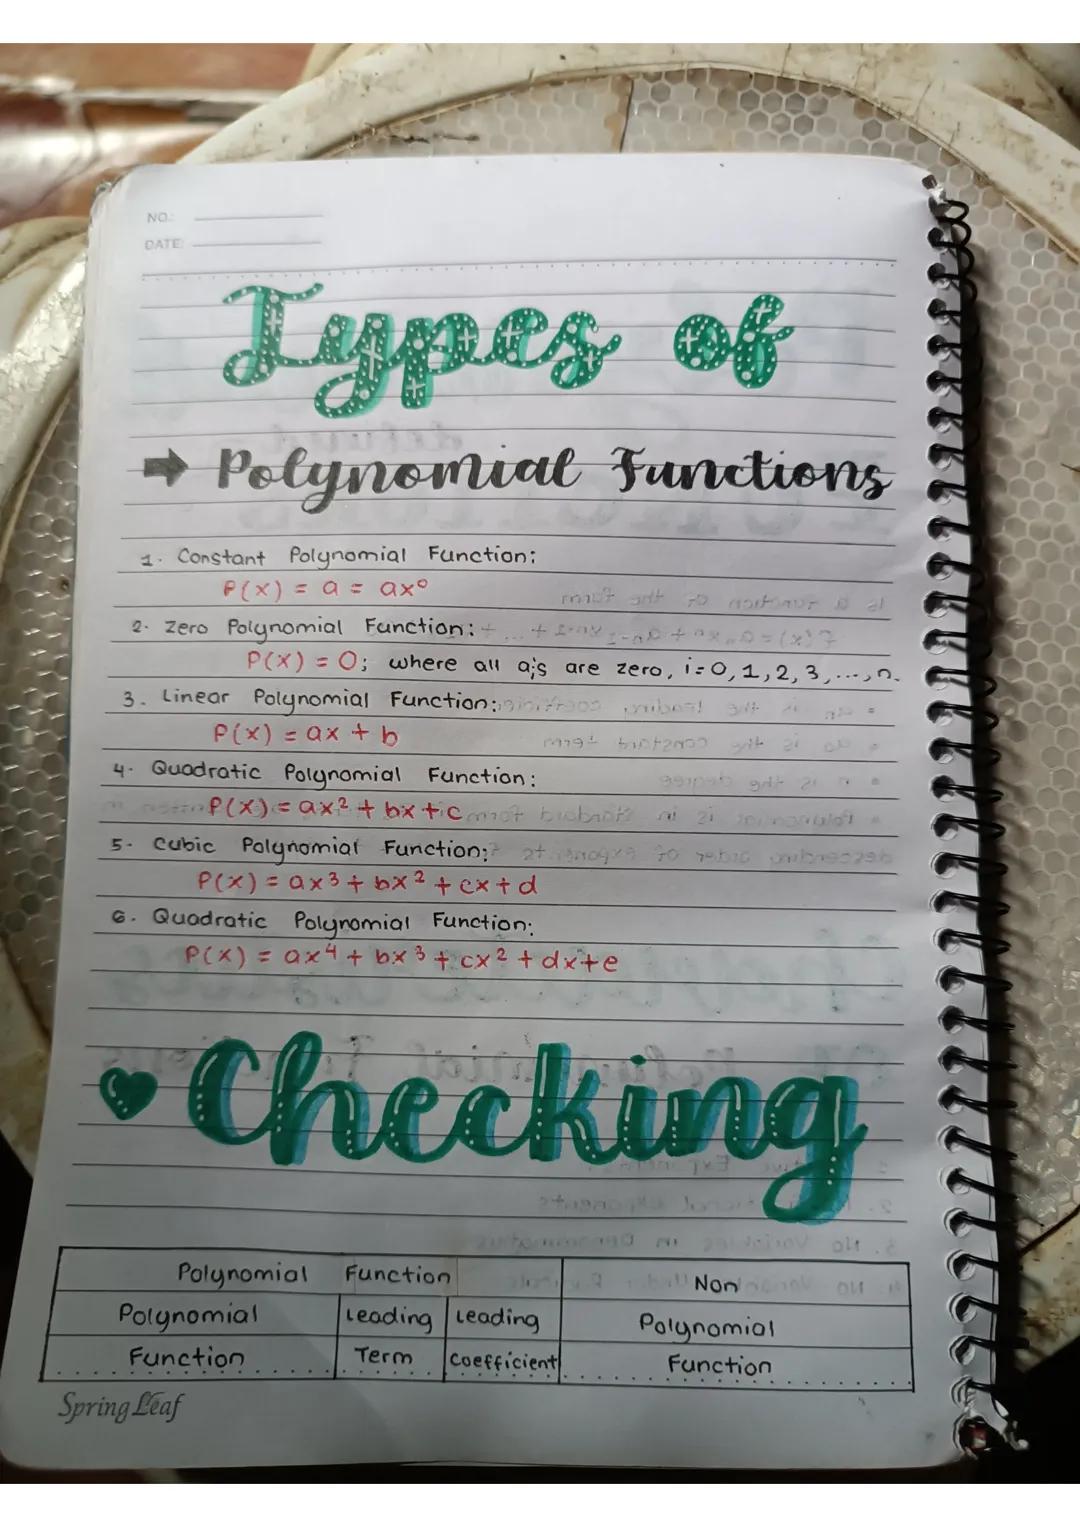 NO.:
DATE:
Types of
➡ Polynomial Functions
1. Constant Polynomial Function:
P(x) = a = ax⁰
2. Zero Polynomial Function:
P(x) = 0; where all ai's are zero, i = 0, 1, 2, 3, ..., n.
3. Linear Polynomial Function:
P(x) = ax + b
4. Quadratic Polynomial Function:
P(x) = ax² + bx + c
5. Cubic Polynomial Function:
P(x) = ax³ + bx² + cx + d
6. Quadratic Polynomial Function:
P(x) = ax⁴ + bx³ + cx² + dx + e
♥ Checking
Polynomial Function Non
Polynomial Leading Leading Polynomial
Function Term Coefficient Function
Spring Leaf